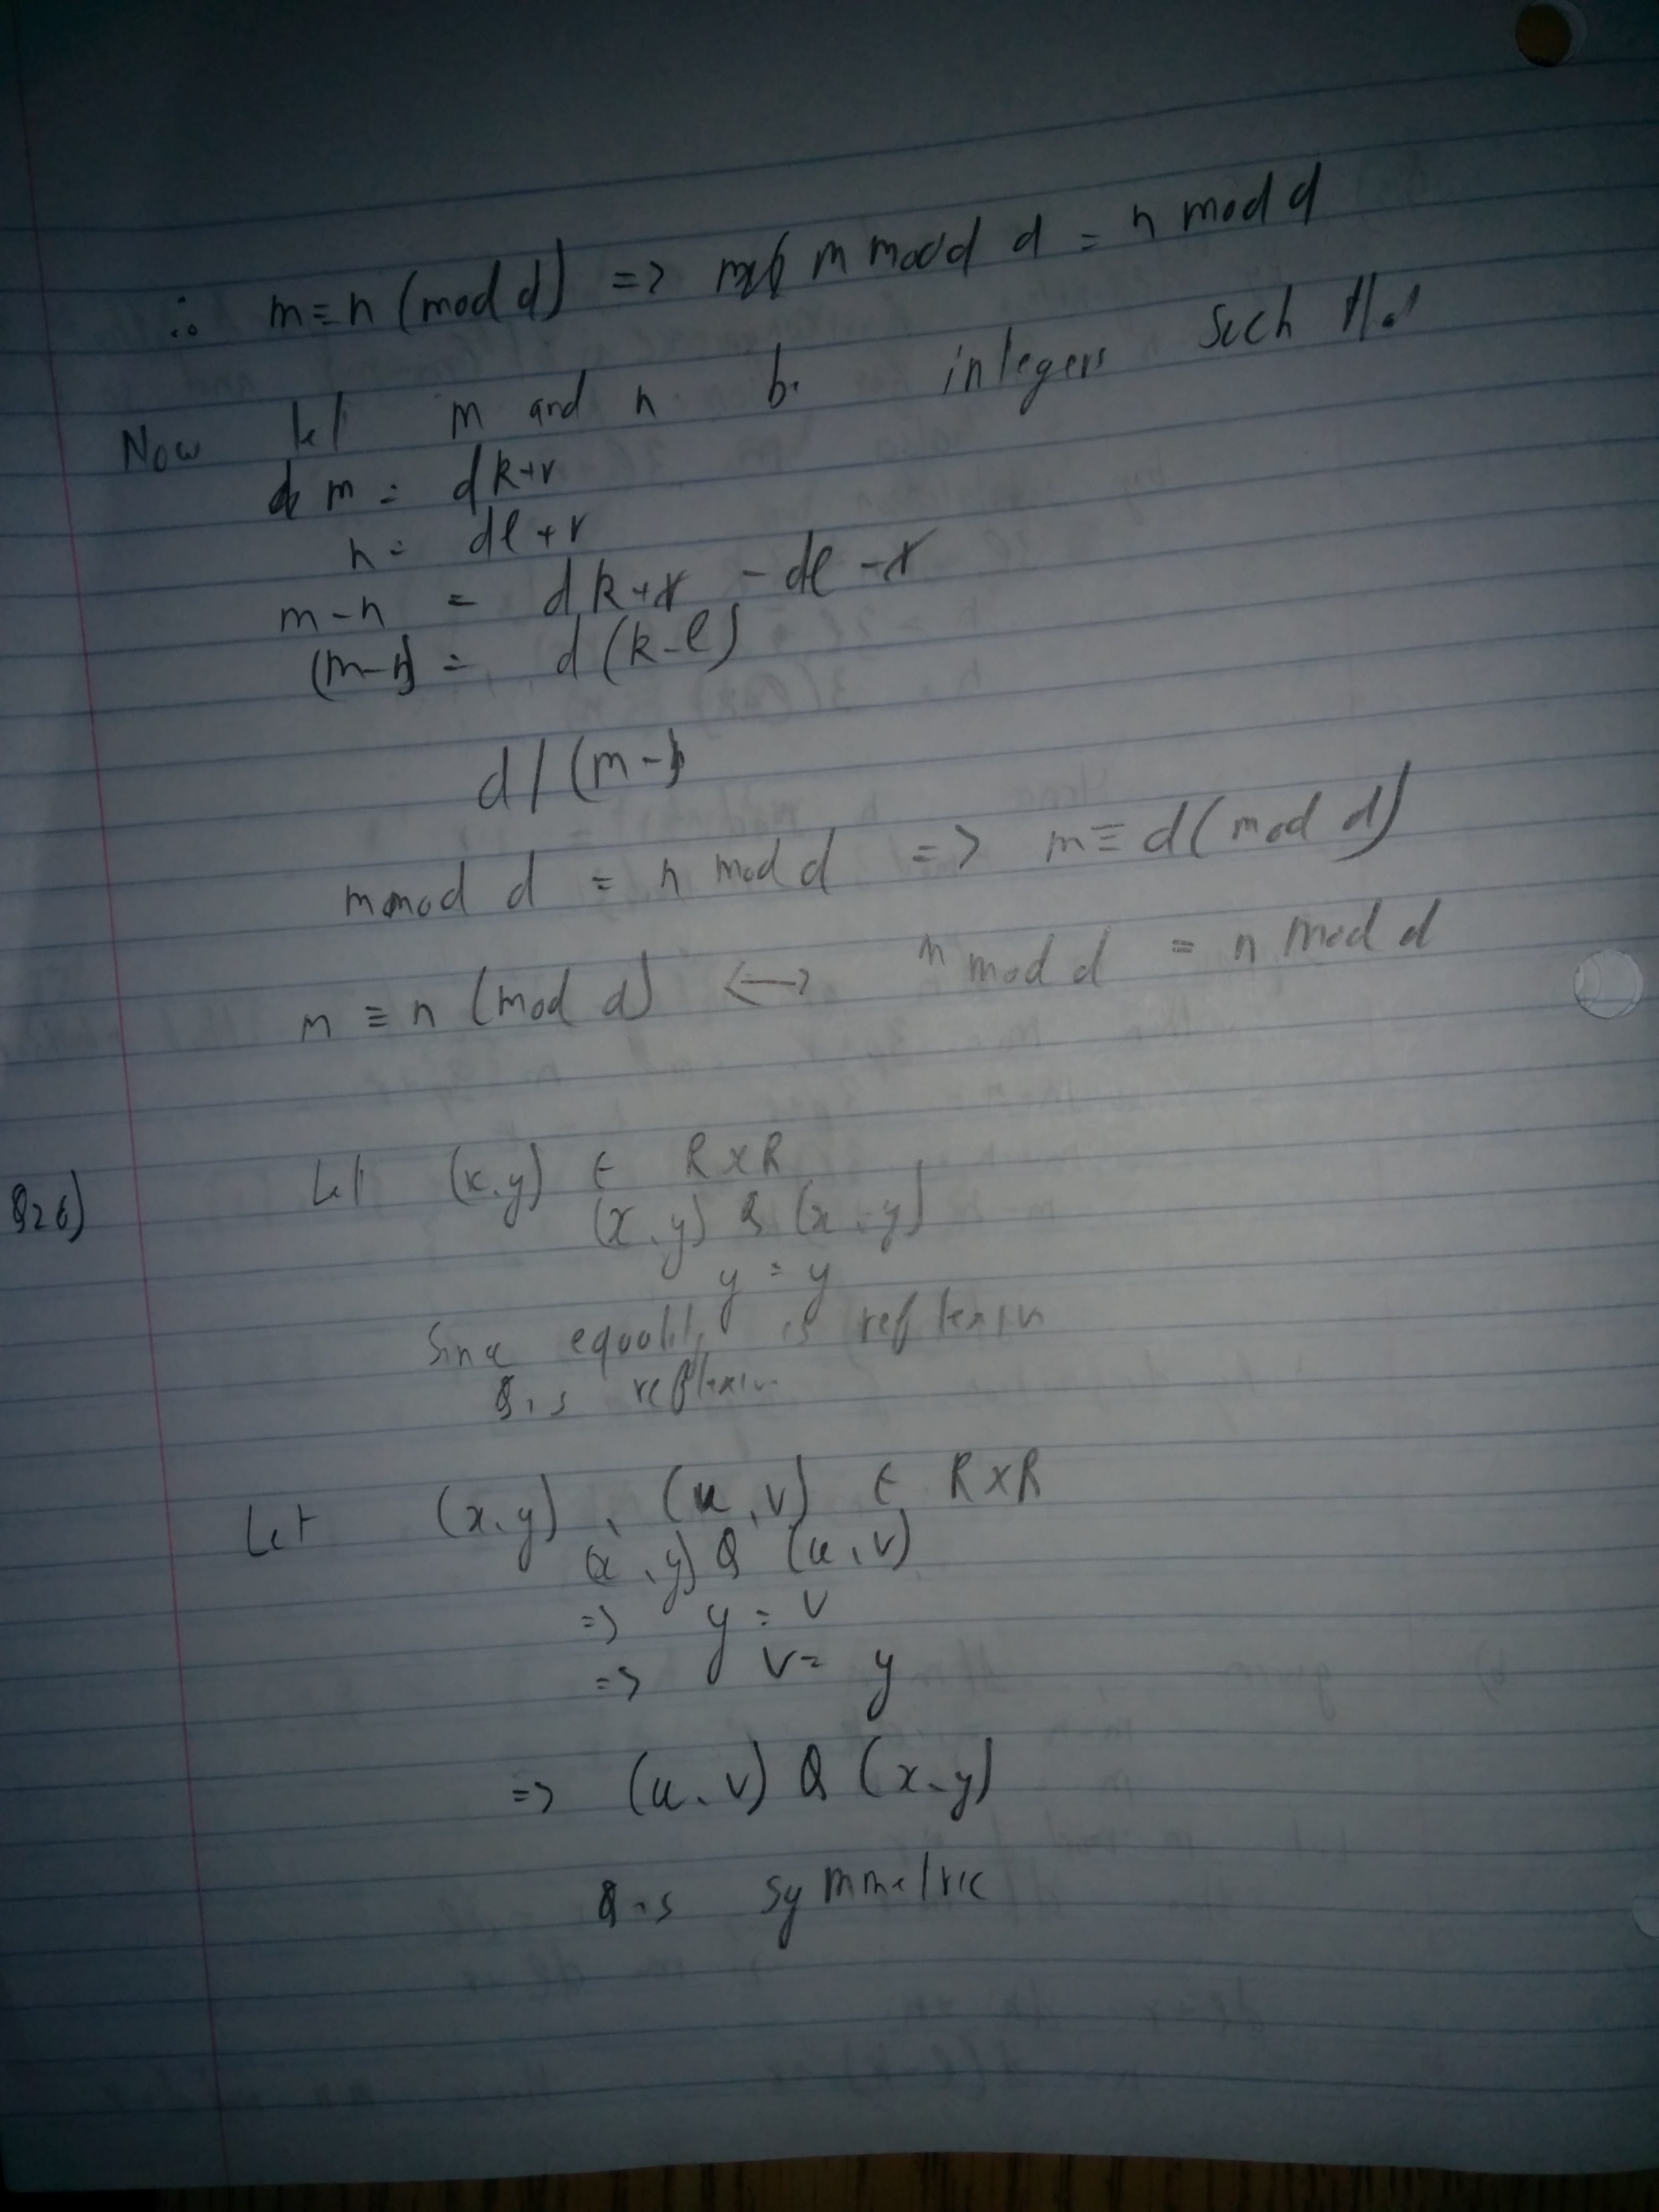 ∴ m≡n (mod d) => m mod d = n mod d
Now let m and n be integers such that
m = dk+r
n = dl+r
m-n = dk+r -dl -r
(m-n) = d(k-l)
d/(m-n)
m mod d = n mod d => m≡d(mod d)
m ≡ n (mod d) <-> m mod d = n mod d
Q26) Let (x,y) ∈ R×R
(x,y) Q (x,y)
y = y
Since equality is reflexive
Q is reflexive
Let (x,y), (u,v) ∈ R×R
(x,y) Q (u,v)
=> y = v
=> v = y
=> (u,v) Q (x,y)
Q is symmetric